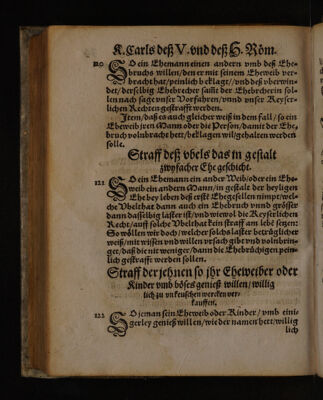 K. Carls deß V. vnd deß H. Röm.
120 SO ein Ehemann einen andern vmb deß Ehe-
bruchs willen / den er mit seinem Eheweib ver-
bracht hat / peinlich beklagt / vnd deß vberwin-
det / derselbig Ehebrecher sampt der Ehebrecherin sol-
len nach sage vnser Vorfahren / vnnd vnser Keyser-
lichen Rechten gestrafft werden.
Item / daß es auch gleicher weiß in dem fall / so ein
Eheweib jren Mann oder die Person / damit er Ehe-
bruch volnbracht hett / beklagen wil / gehalten werden
solle.
Straff deß vbels das in gestalt
zwyfacher Ehe geschicht.
121 SO ein Ehemann ein ander Weib / oder ein Ehe-
weib ein andern Mann / in gestalt der heyligen
Ehe bey leben deß erste Ehegesellen nimpt / wel-
che Vbelthat dann auch ein Ehebruch vnnd grösser
dann dasselbig laster ist / vnd wiewol die Keyserlichen
Recht / auff solche Vbelthat kein straff am lebe setzen:
So wöllen wir doch / welcher solchs laster betrüglicher
weiß / mit wissen vnd willen vrsach gibt vnd volnbrin-
get / daß die nit weniger / dann die Ehebrüchigen pein-
lich gestrafft werden sollen.
Straff der jehnen so jhr Eheweiber oder
Kinder vmb böses genieß willen / willig
lich zu vnkeuschen wercken ver-
kauffen.
122 SO jeman sein Eheweib oder Kinder / vmb eini-
gerley genieß willen / wie der namen hett / willig
lich